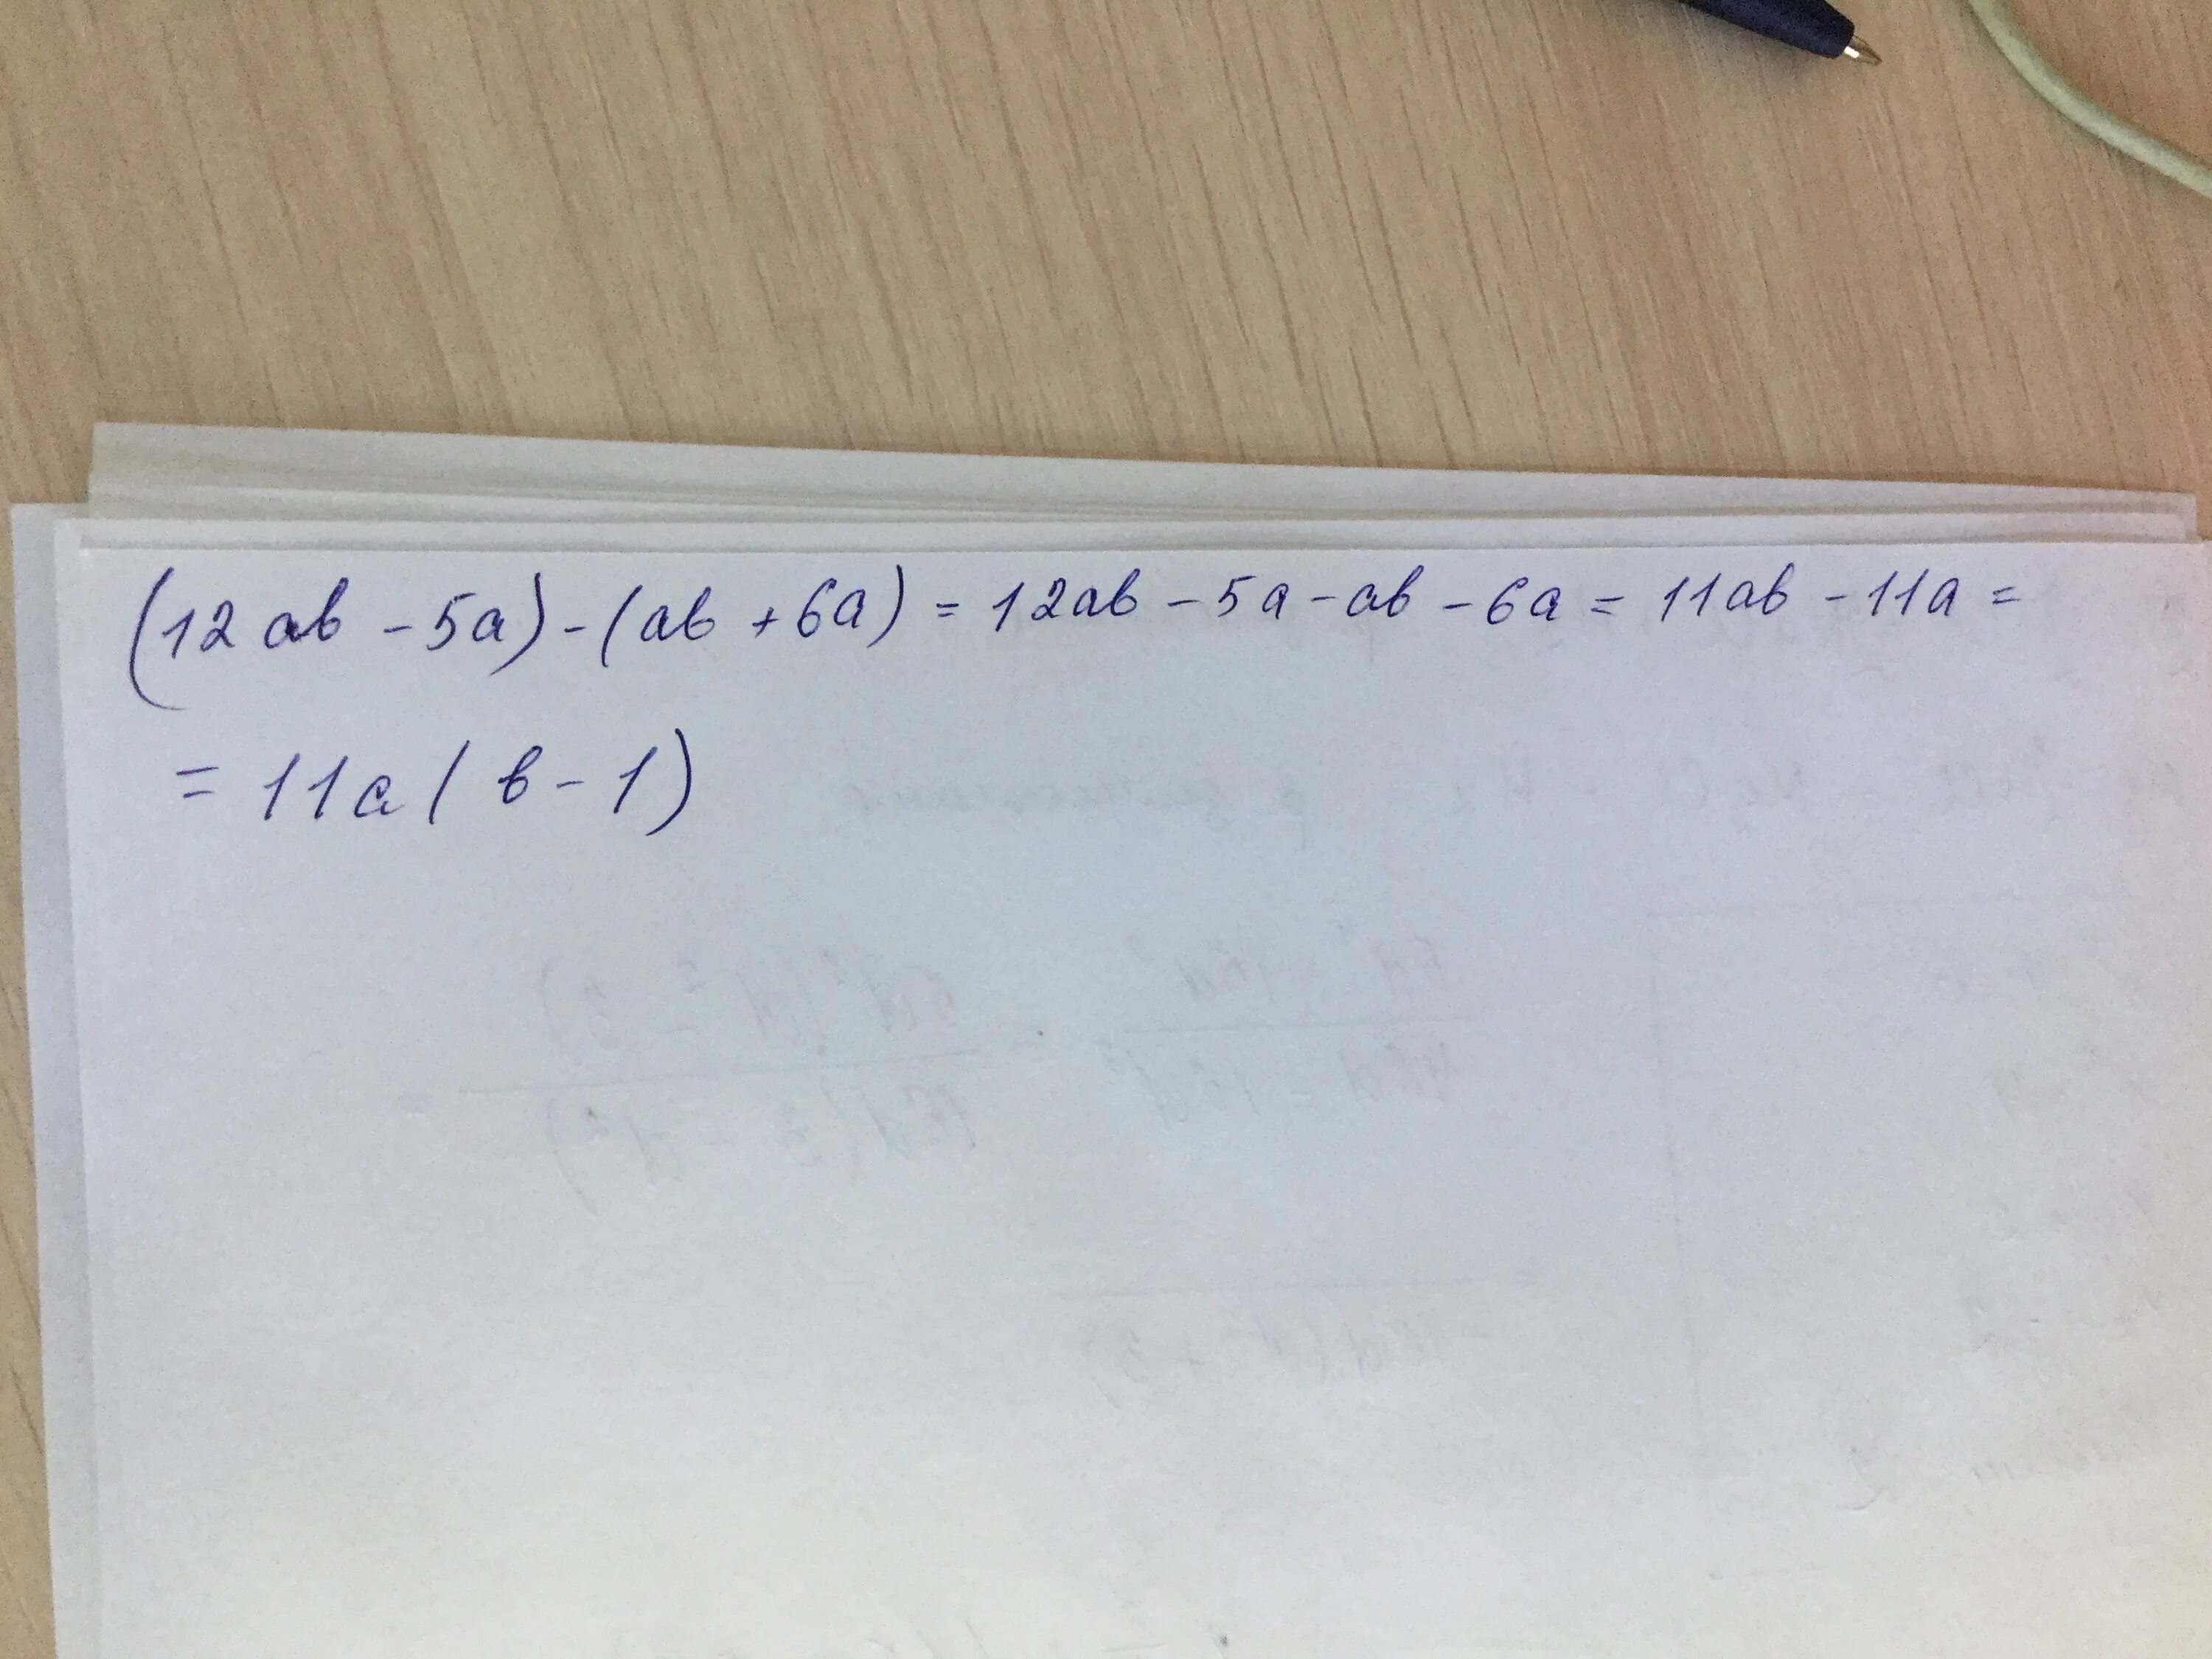 (12ab - 5a) - (ab + 6a) = 12ab - 5a - ab - 6a = 11ab - 11a =
= 11a(b - 1)